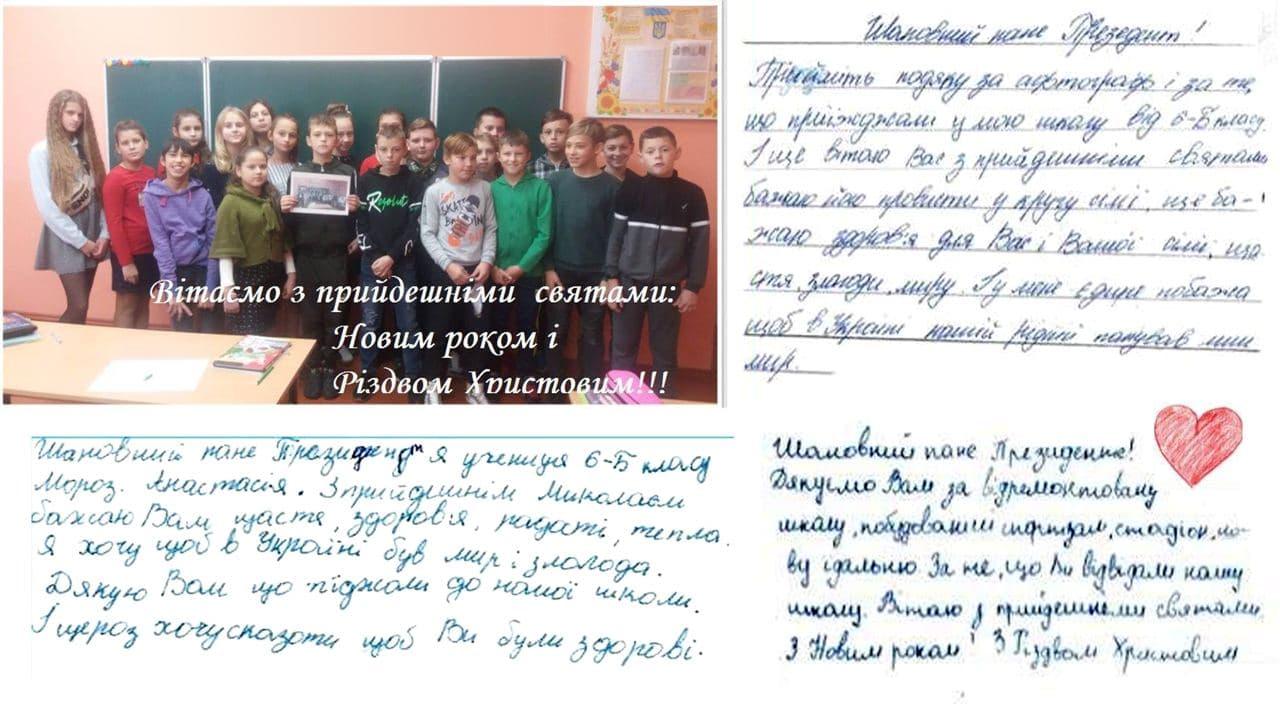 Вітаємо з прийдешніми святами:
Новим роком і
Різдвом Христовим!!!
Шановний пане Президент!
Прийміть подяку за афтограф і за те,
що приїжджали у мою школу від 6-Б класу.
І ще вітаю Вас з прийдешніми святами
бажаю його провисти у кругу сімї, ще ба-
жаю здоров'я для Вас і Вашої сімї, ща
стя, злагоди, миру. І у мене єдине побажа
щоб в Україні нашій рідній панував лиш
мир.
Шановний пане Президент я учениця 6-Б класу
Мороз. Анастасія. З прийдешнім Миколаєм
бажаю Вам щастя, здоров'я, тепла.
Я хочу щоб в Україні був мир і злагода.
Дякую Вам що приїджали до нашої школи.
І щераз хочу сказати щоб Ви були здорові.
Шановний пане Президенте!
Дякуємо Вам за відремонтовану
школу, побудований спортзал, стадіон, но-
ву їдальню. За те, що Ви відвідали нашу
школу. Вітаю з прийдешнеми святами.
З Новим роком! З Різдвом Христовим